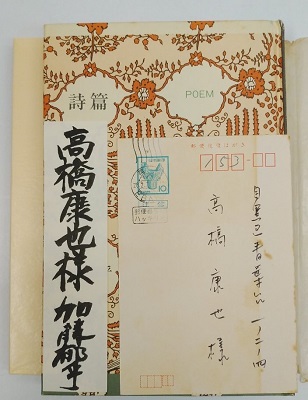 詩篇
POEM
高橋康也様 加藤郁乎
郵便はがき
153
10
目黒区青葉台一ノ二ノ四
高橋康也様